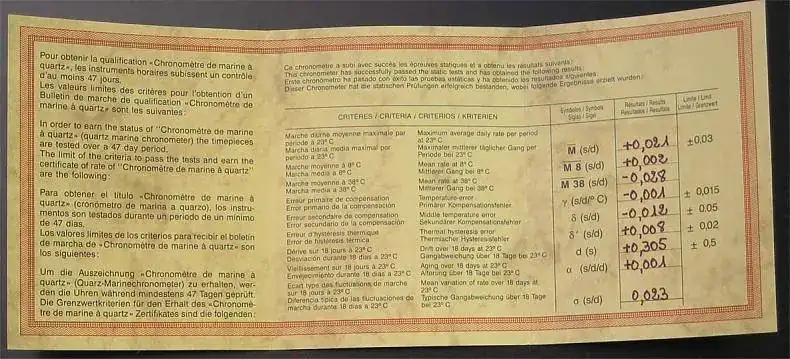 Pour obtenir la qualification «Chronomètre de marine à
quartz», les instruments horaires subissent un contrôle
d'au moins 47 jours.
Les valeurs limites des critères pour l'obtention d'un
Bulletin de marche de qualification «Chronomètre de
marine à quartz» sont les suivantes:
In order to earn the status of "Chronomètre de marine
à quartz" (quartz marine chronometer) the timepieces
are tested over a 47 day period.
The limit of the criteria to pass the tests and earn the
certificate of rate of "Chronomètre de marine à quartz"
are the following:
Para obtener el título «Chronomètre de marine à
quartz» (cronómetro de marina a quarzo), los instru-
mentos son testados durante un periodo de un mínimo
de 47 días.
Los valores limites de los criterios para recibir el boletin
de marcha de «Chronomètre de marine à quartz» son
los siguientes:
Um die Auszeichnung «Chronomètre de marine à
quartz» (Quarz-Marinechronometer) zu erhalten, wer-
den die Uhren während mindestens 47 Tagen geprüft.
Die Grenzwertkriterien für den Erhalt des «Chronomè-
tre de marine à quartz» Zertifikats sind die folgenden:
Ce chronomètre a subi avec succès les épreuves statiques et a obtenu les résultats suivants:
This chronometer has successfully passed the static tests and has obtained the following results:
Este chronométro ha pasado con éxito las pruebas estáticas y ha obtenido los resultados siguientes:
Dieser Chronometer hat die statischen Prüfungen erfolgreich bestanden, wobei folgende Ergebnisse erzielt wurden:
CRITÈRES / CRITERIA / CRITERIOS / KRITERIEN
Symboles / Symbols
Siglas / Sigel
Résultats / Results
Resultados / Resultate
Limite / Limit
Limite / Grenzwert
Marche diurne moyenne maximale par
période à 23º C
Marcha diaria media maximal por
período a 23º C
Maximum average daily rate per period
at 23º C
Maximaler mittlerer täglicher Gang per
Periode bei 23º C
M (s/d) +0,021 ±0,03
Marche moyenne à 8º C
Marcha media a 8º C
Mean rate at 8º C
Mittlerer Gang bei 8º C
M 8 (s/d) +0,002
Marche moyenne à 38º C
Marcha media a 38º C
Mean rate at 38º C
Mittlerer Gang bei 38º C
M 38 (s/d) -0,028
Erreur primaire de compensation
Error primario de la compensación
Temperature-error
Primärer Kompensationsfehler
γ (s/d/º C) -0,001 ± 0,015
Erreur secondaire de compensation
Error secundario de la compensación
Middle temperature error
Sekundärer Kompensationsfehler
δ (s/d) -0,012 ± 0.05
Erreur d'hystérésis thermique
Error de histéresis térmica
Thermal hysteresis error
Thermischer Hysteresisfehler
δ' (s/d) +0,008 ± 0,02
Dérive sur 18 jours à 23º C
Desviación durante 18 días a 23º C
Drift over 18 days at 23º C
Gangabweichung über 18 Tage bei 23º C
d (s) +0,305 ± 0,5
Vieillissement sur 18 jours à 23º C
Envejecimiento durante 18 días a 23º C
Aging over 18 days at 23º C
Alterung über 18 Tage bei 23º C
α (s/d/d) +0,001
Ecart type des fluctuations de marche
sur 18 jours à 23º C
Diferencia típica de las fluctuaciones de
marcha durante 18 días a 23º C
Mean variation of rate over 18 days at
23º C
Typische Gangabweichung über 18 Tage
bei 23º C
σ (s/d) 0,023